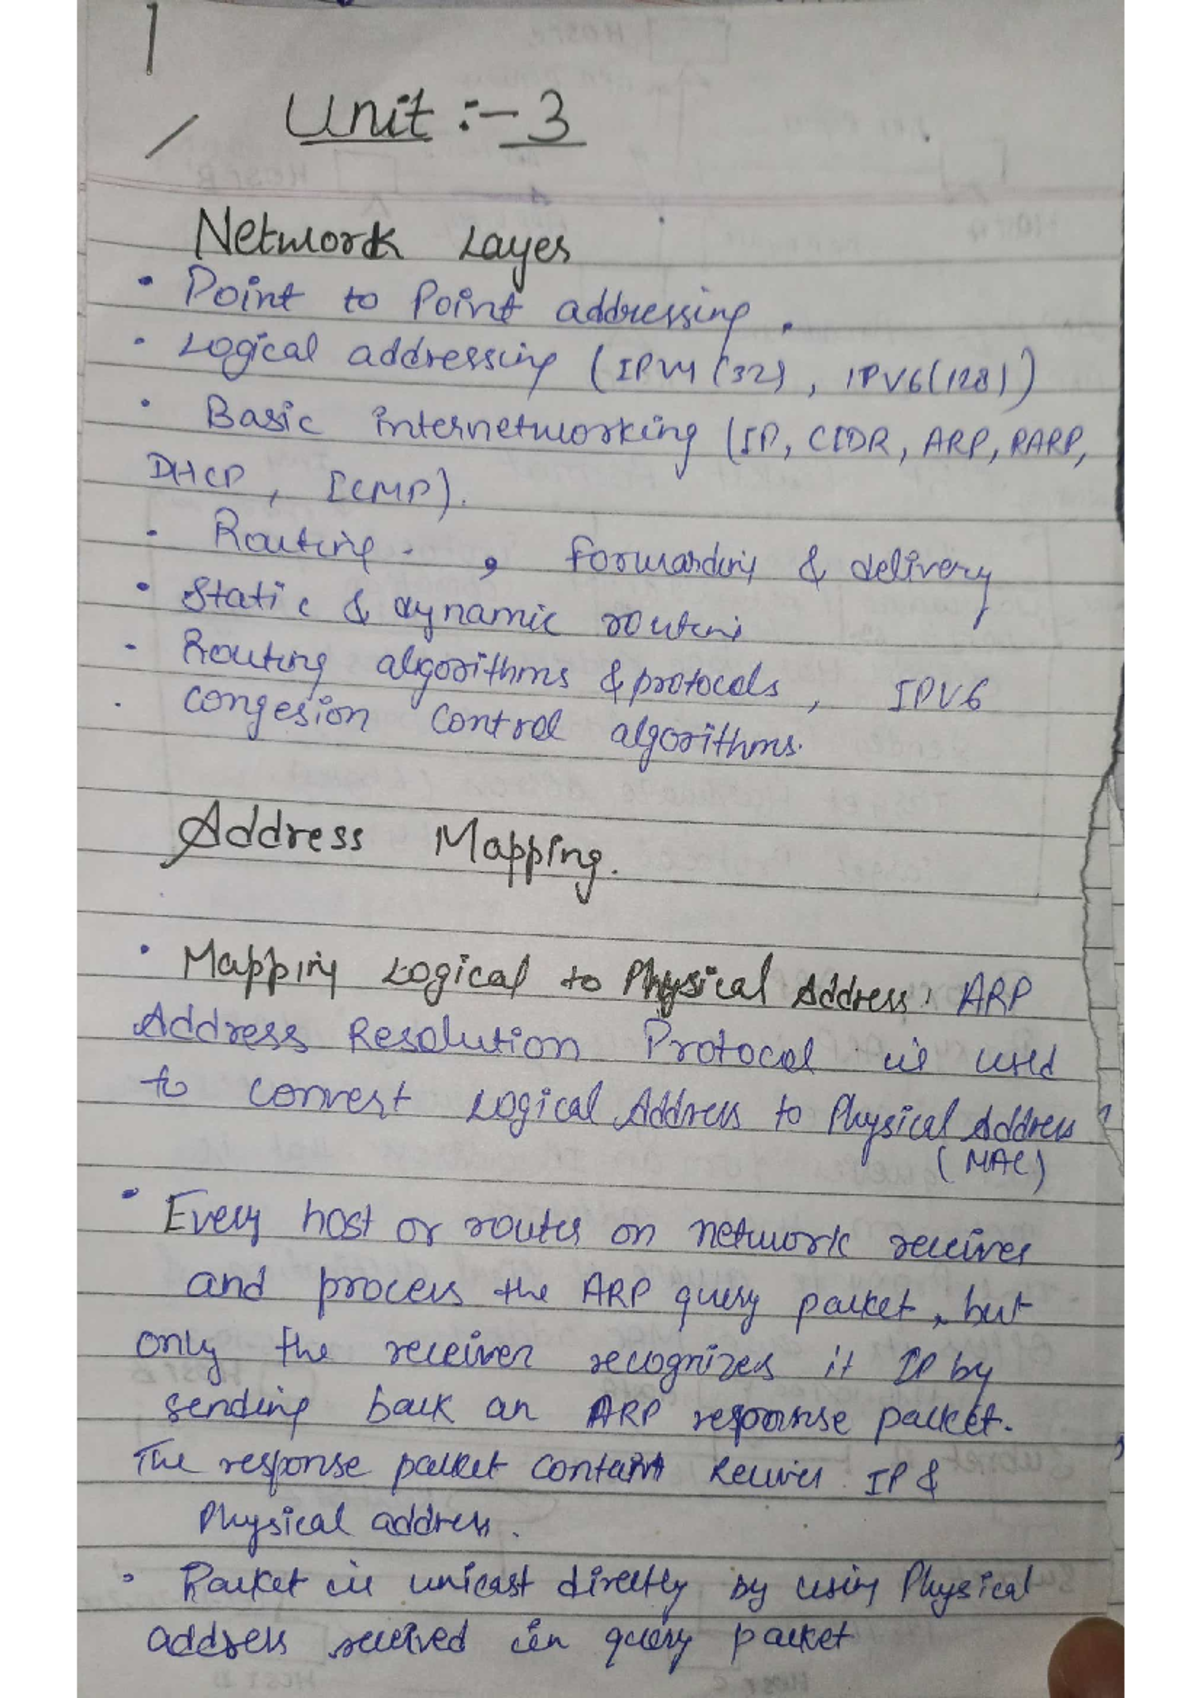 1
Unit :- 3
Network Layer
• Point to Point addressing.
• Logical addressing (IPV4 (32), IPV6(128))
• Basic internetworking (IP, CIDR, ARP, RARP,
DHCP, ICMP).
• Routing , forwarding & delivery
• Static & dynamic routing
• Routing algorithms & protocols, IPV6
• Congesion control algorithms.
Address Mapping.
• Mapping Logical to Physical Address: ARP
Address Resolution Protocol is used
to convert Logical Address to Physical Address
(MAC)
• Every host or router on network receives
and process the ARP query packet, but
only the receiver recognizes it IP by
sending back an ARP response packet.
The response packet contain Receiver IP &
Physical address.
• Packet is unicast directly by using Physical
address received in query packet